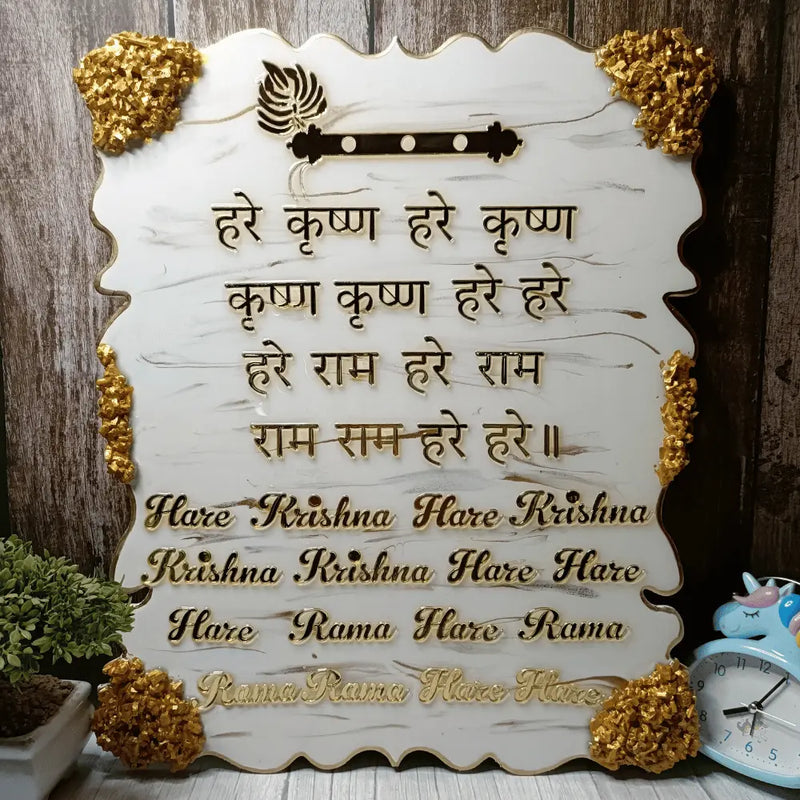 हरे कृष्ण हरे कृष्ण
कृष्ण कृष्ण हरे हरे
हरे राम हरे राम
राम राम हरे हरे ॥
Hare Krishna Hare Krishna
Krishna Krishna Hare Hare
Hare Rama Hare Rama
Rama Rama Hare Hare
10 11 12
9
8
7 6 5